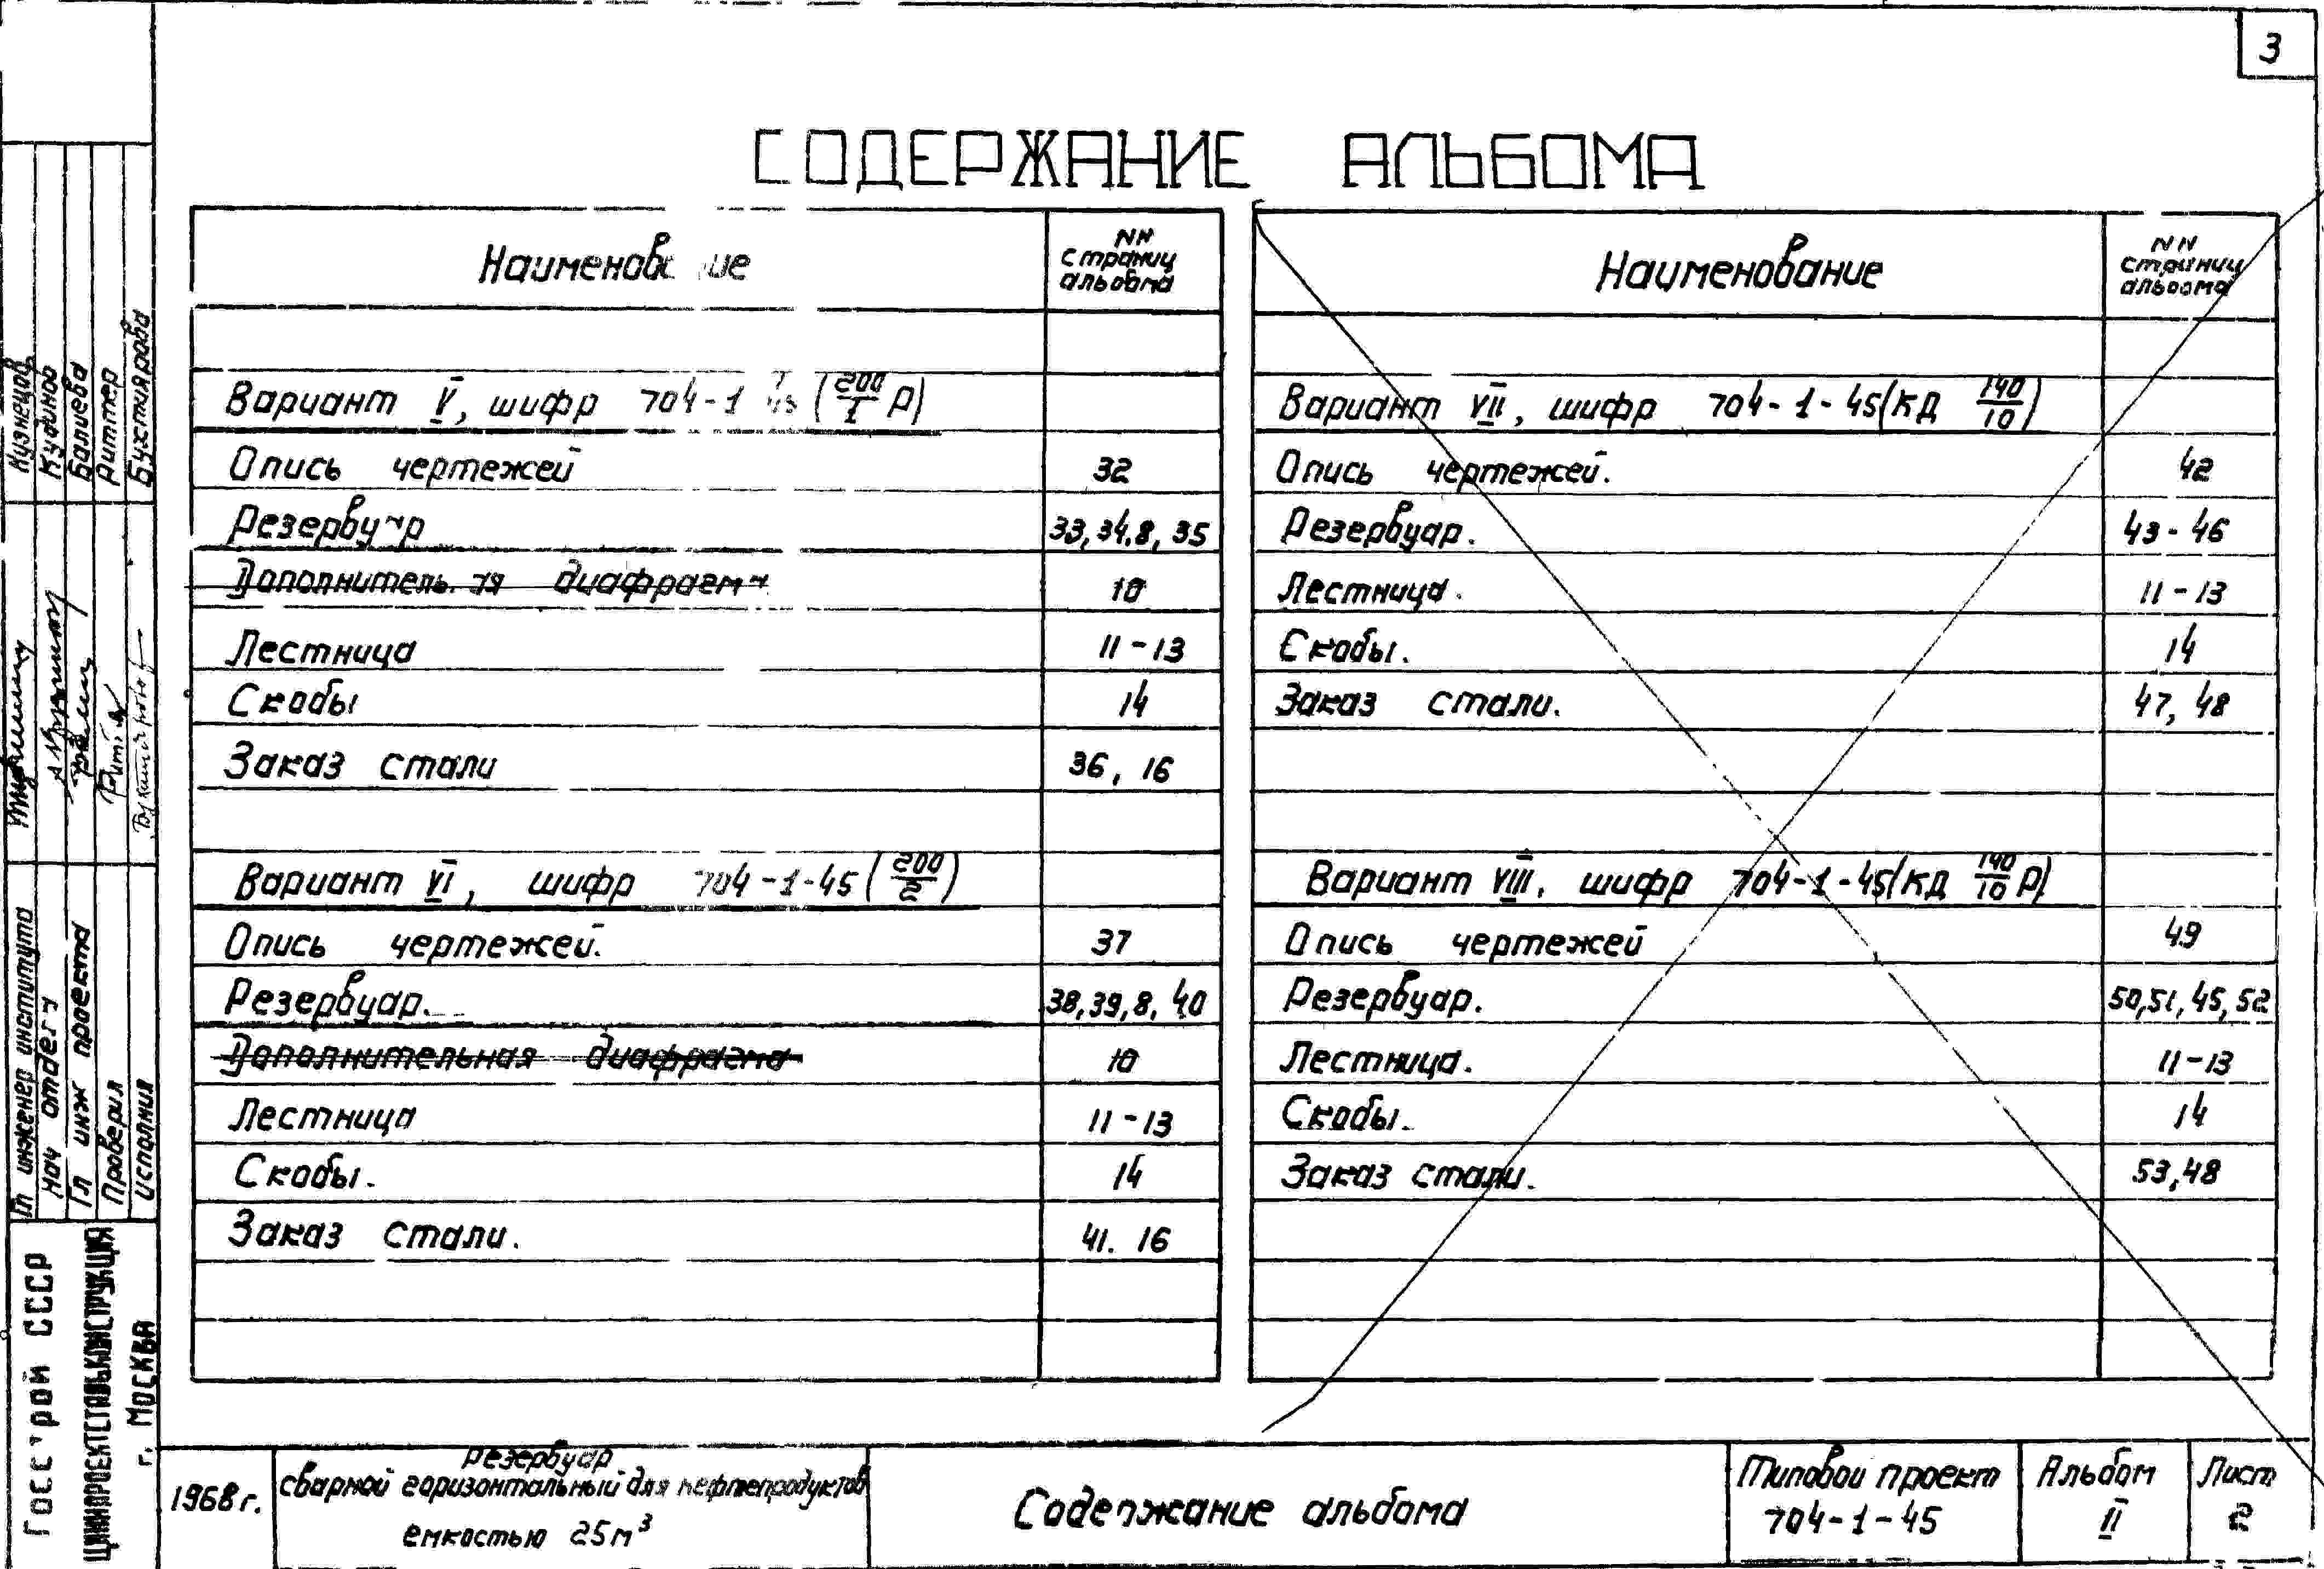 3
СОДЕРЖАНИЕ АЛЬБОМА
Наименование
NN
страниц
альбома
Вариант V, шифр 704-1-45 (200/1 Р)
Опись чертежей 32
Резервуар 33, 34, 8, 35
Дополнительная диафрагма 10
Лестница 11-13
Скобы 14
Заказ стали 36, 16
Вариант VI, шифр 704-1-45 (200/2)
Опись чертежей. 37
Резервуар. 38, 39, 8, 40
Дополнительная диафрагма 10
Лестница 11-13
Скобы. 14
Заказ стали. 41. 16
Наименование
NN
страниц
альбома
Вариант VII, шифр 704-1-45(КД 140/10)
Опись чертежей. 42
Резервуар. 43-46
Лестница. 11-13
Скобы. 14
Заказ стали. 47, 48
Вариант VIII, шифр 704-1-45(КД 140/10 Р)
Опись чертежей 49
Резервуар. 50, 51, 45, 52
Лестница. 11-13
Скобы. 14
Заказ стали. 53, 48
Кузнецов
Куфинов
Балиева
Риттер
Бухтиярова
Гл инженер института
Нач отдела
Гл инж проекта
Проверил
Исполнил
Госстрой СССР
ЦНИИПРОЕКТСТАЛЬКОНСТРУКЦИЯ
г. МОСКВА
1968г.
Резервуар
сварной горизонтальный для нефтепродуктов
емкостью 25м³
Содержание альбома
Типовой проект
704-1-45
Альбом
II
Лист
2